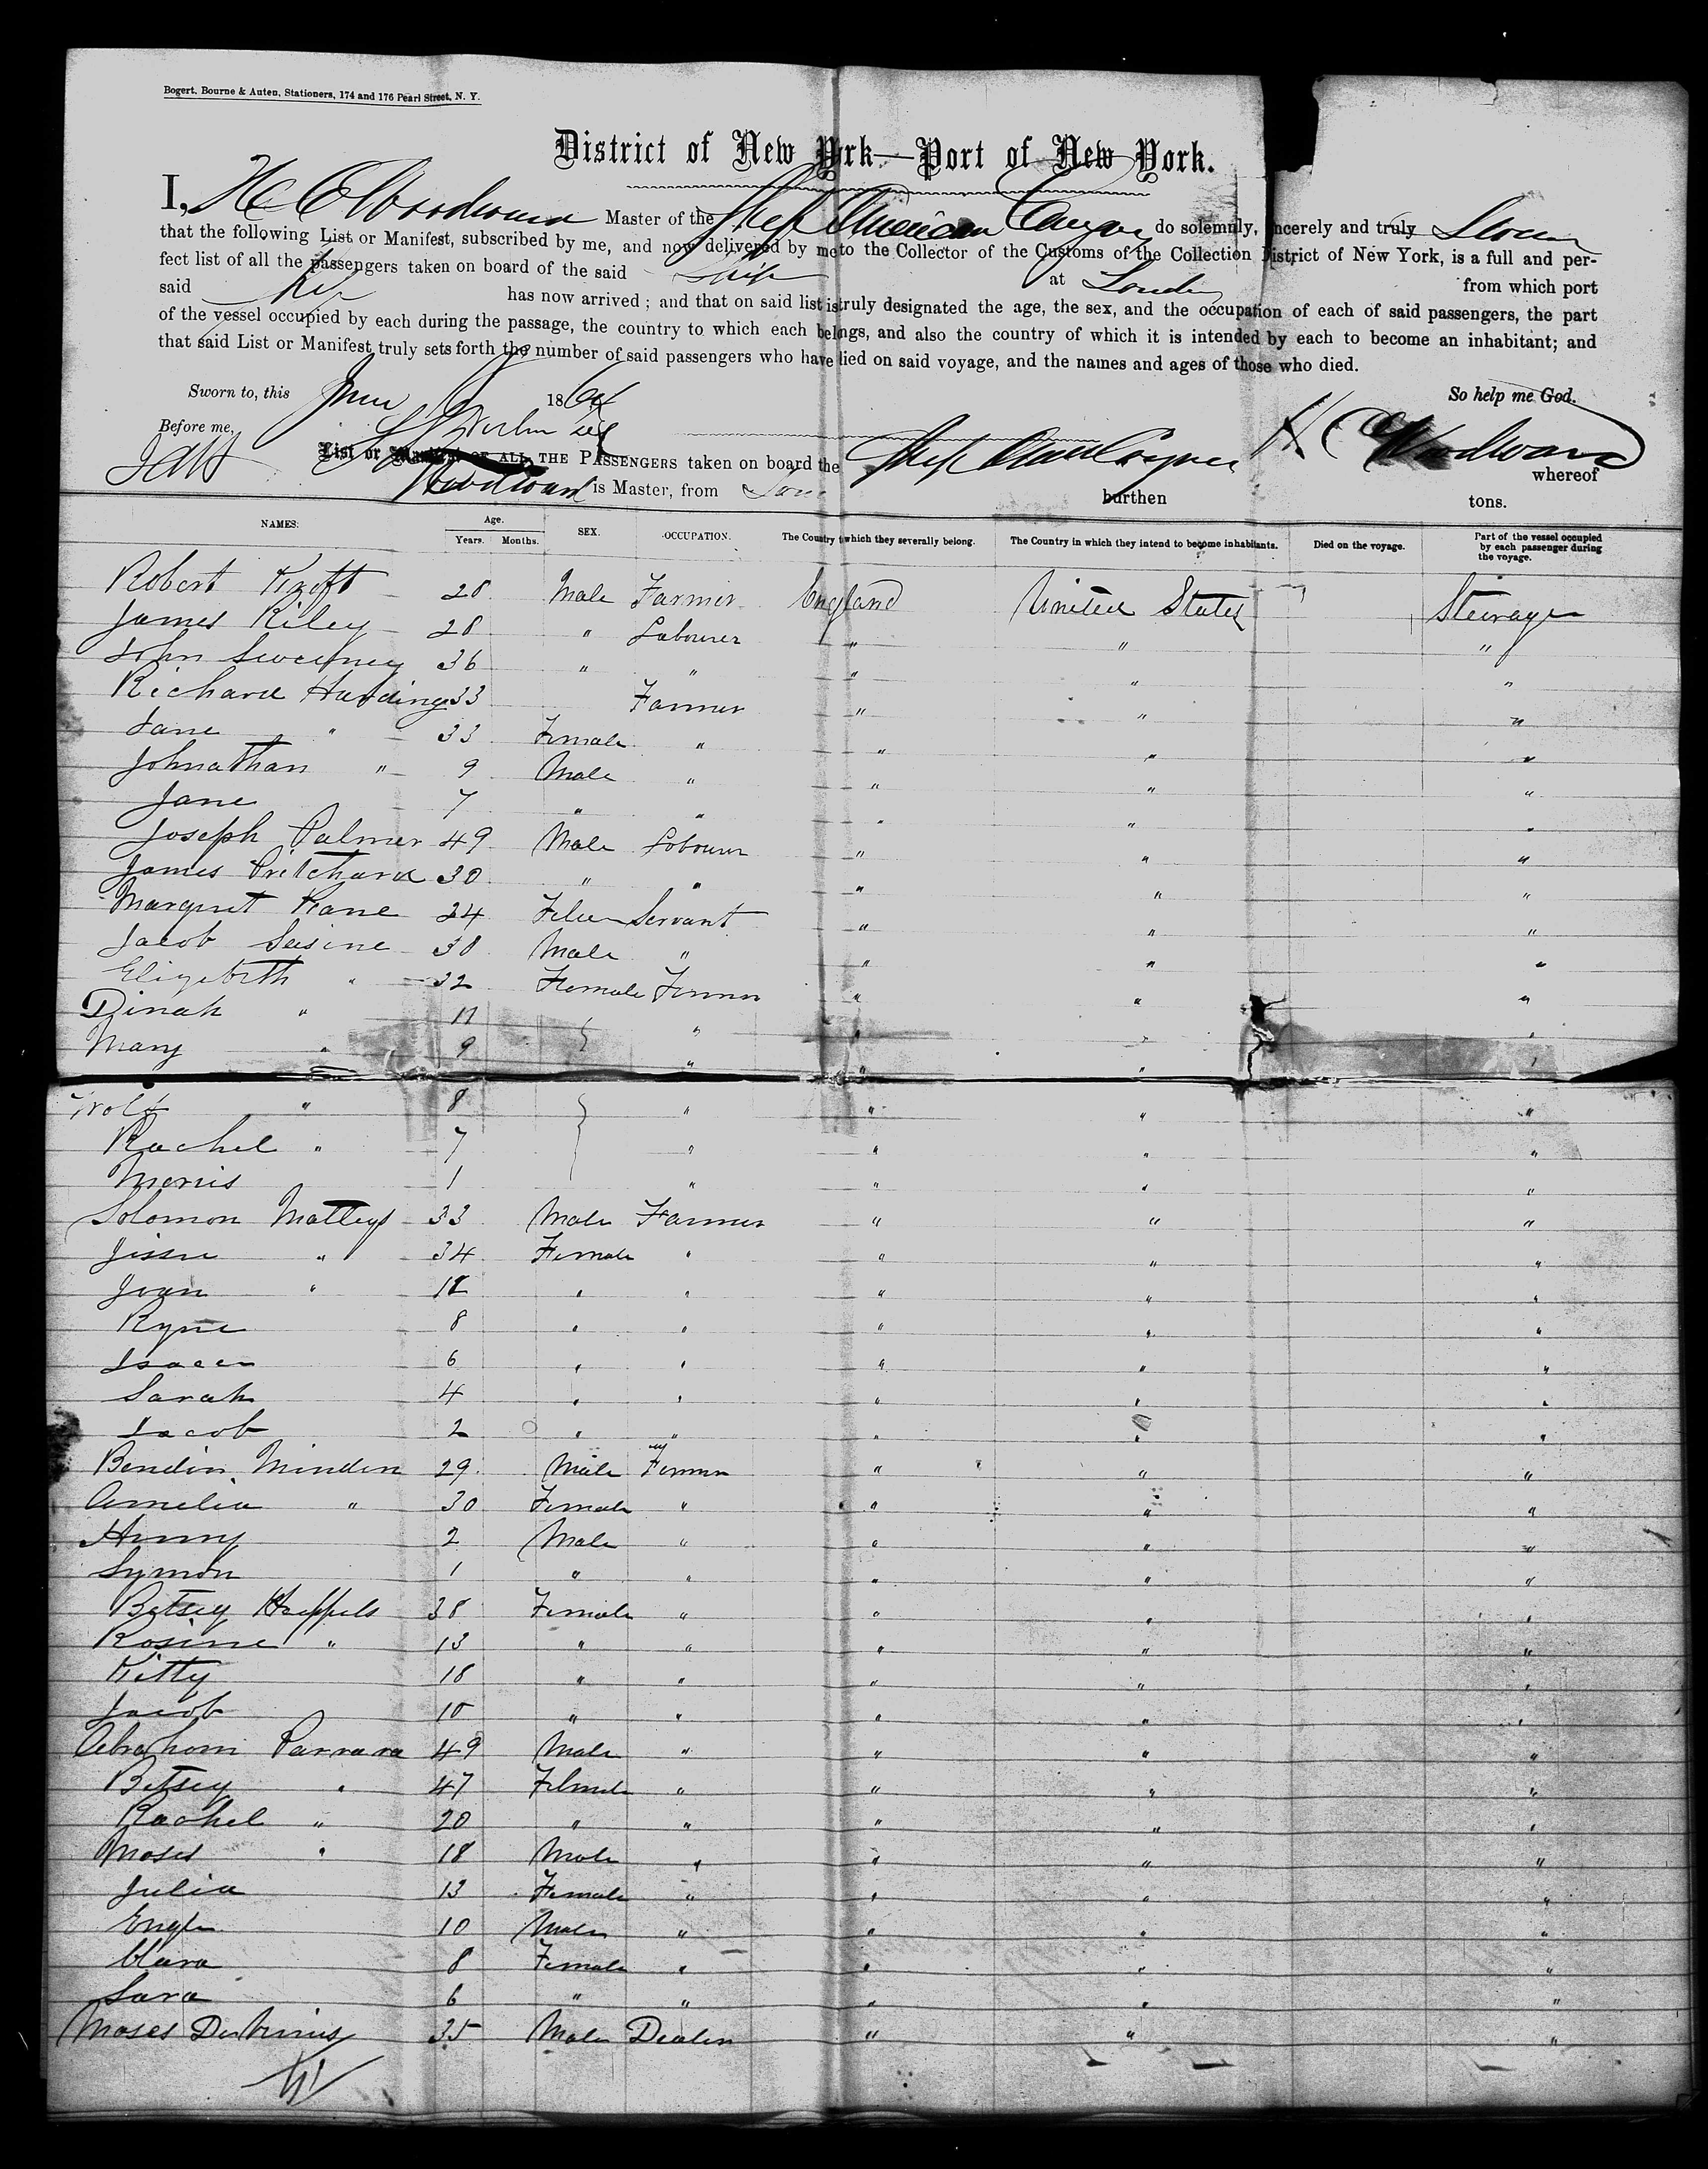 Bogert, Bourne & Auten, Stationers, 174 and 176 Pearl Street, N. Y.
District of New York—Port of New York.
I, H C Woodward Master of the Ship American Congress do solemnly, sincerely and truly Swear
that the following List or Manifest, subscribed by me, and now delivered by me to the Collector of the Customs of the Collection District of New York, is a full and per-
fect list of all the passengers taken on board of the said Ship at London from which port
said Ship has now arrived ; and that on said list is truly designated the age, the sex, and the occupation of each of said passengers, the part
of the vessel occupied by each during the passage, the country to which each belongs, and also the country of which it is intended by each to become an inhabitant; and
that said List or Manifest truly sets forth the number of said passengers who have died on said voyage, and the names and ages of those who died.
Sworn to, this June 1864 So help me God.
Before me, H C Woodward
List or Manifest OF ALL THE PASSENGERS taken on board the Ship whereof
Woodward is Master, from burthen tons.
NAMES. Age. Years. Months. SEX. OCCUPATION. The Country to which they severally belong. The Country in which they intend to become inhabitants. Died on the voyage. Part of the vessel occupied by each passenger during the voyage.
Robert Kroft 28 Male Farmer England United States Steerage
James Riley 28 " Labourer " " "
John Sweeney 36 " " " " "
Richard Harding 33 Farmer " " "
Jane " 33 Female " " " "
Johnathan " 9 Male " " " "
Jane 7 " " " " "
Joseph Palmer 49 Male Labourer " " "
James Pritchard 30 " " " " "
Margret Kane 24 Servant " " "
Jacob Sasine 38 Male " " " "
Elizabeth " 32 Female Farmer " " "
Dinah " 11 " " " "
Mary " 9 " " " "
Wolf " 8 " " " "
Rachel " 7 " " " "
Morris 1 " " " "
Solomon Matteys 33 Male Farmer " " "
Jissie " 34 Female " " " "
Joan " 12 " " " " "
Ryne 8 " " " " "
Isaac 6 " " " " "
Sarah 4 " " " " "
Jacob 2 " " " " "
Bendin Minden 29 Male Farmer " " "
Amelia " 30 Female " " " "
Henry 2 Male " " " "
Symon 1 " " " " "
Betsey Huppels 38 Female " " " "
Rosine " 13 " " " " "
Kitty 18 " " " " "
Jacob 10 " " " " "
Abraham Parrara 49 Male " " " "
Betsey " 47 Female " " " "
Rachel " 20 " " " " "
Moses " 18 Male " " " "
Julia 13 Female " " " "
10 Male " " " "
Clara 8 Female " " " "
Sara 6 " " " " "
Moses 35 Male Dealer " " "
41